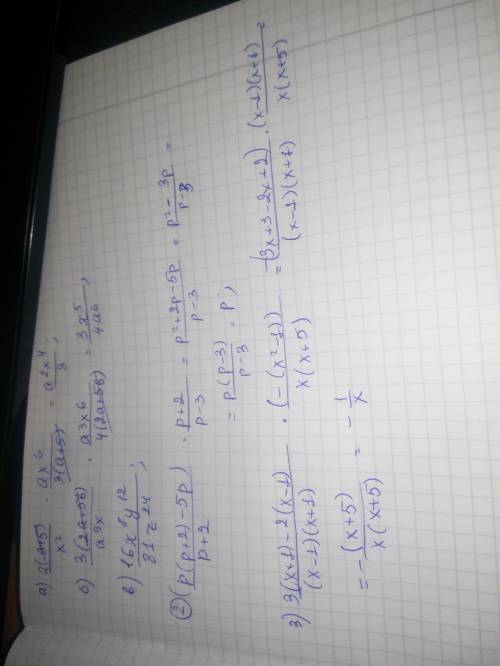 а) a(a+5)/x² · ax⁶/3(a+5) = a²x⁴/3;
б) 3(2a+5б)/a⁹x · a³x⁶/4(2a+5б) = 3x⁵/4a⁶;
в) 16x⁸y¹²/81z²⁴;
② (p(p+2)-5p)/p+2 · p+2/p-3 = p²+2p-5p/p-3 = p²-3p/p-3 =
= p(p-3)/p-3 = p;
3) 3(x+1)-2(x-1)/(x-1)(x+1) · (-(x²-1))/x(x+5) = -(3x+3-2x+2)/(x-1)(x+1) · (x-1)(x+1)/x(x+5) =
= -(x+5)/x(x+5) = -1/x